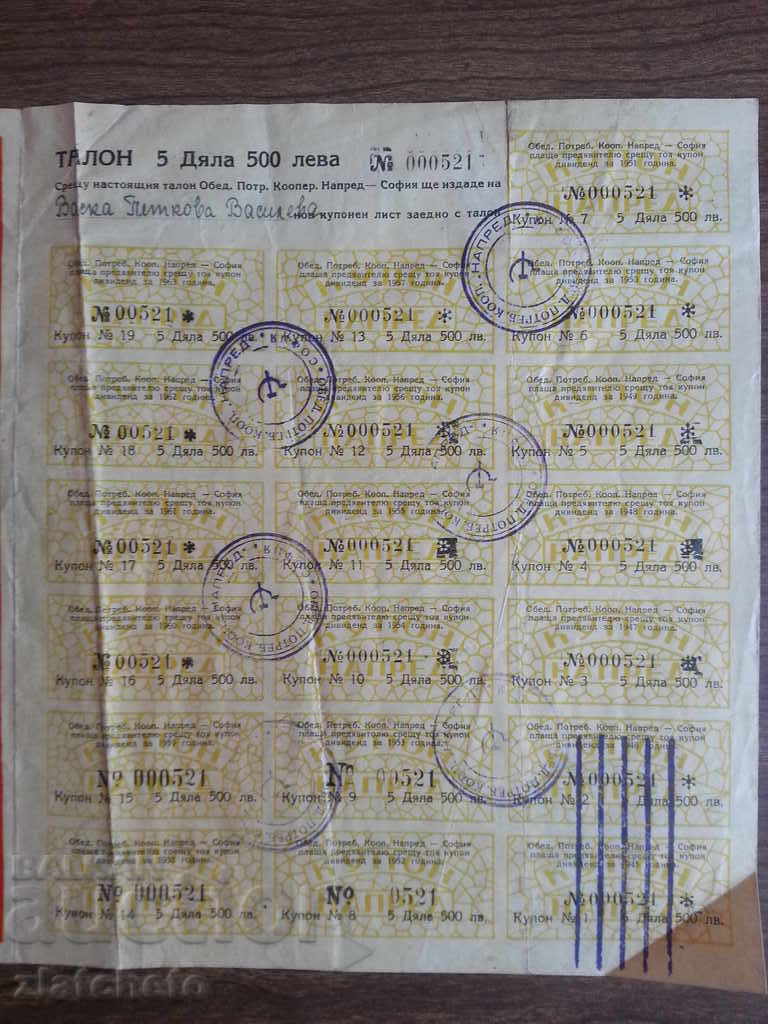 ТАЛОН 5 Дяла 500 лева № 000521
Срещу настоящия талон Обед. Потр. Коопер. Напред — София ще издаде на
Васка Петкова Василева нов купонен лист заедно с талон
Обед. Потреб. Кооп. Напред — София
плаща предявителю срещу тоя купон
дивиденд за 1951 година.
№000521 *
Купон № 7 5 Дяла 500 лв.
Обед. Потреб. Кооп. Напред — София
плаща предявителю срещу тоя купон
дивиденд за 1963 година.
№00521 *
Купон № 19 5 Дяла 500 лв.
Обед. Потреб. Кооп. Напред — София
плаща предявителю срещу тоя купон
дивиденд за 1957 година.
№000521 *
Купон № 13 5 Дяла 500 лв.
плаща предявителю срещу тоя купон
дивиденд за 1953 година.
№000521 *
Купон № 6 5 Дяла 500 лв.
Обед. Потреб. Кооп. Напред — София
плаща предявителю срещу тоя купон
дивиденд за 1962 година.
№00521 *
Купон № 18 5 Дяла 500 лв.
Обед. Потреб. Кооп. Напред — София
плаща предявителю срещу тоя купон
дивиденд за 1956 година.
№000521
Купон № 12 5 Дяла 500 лв.
Обед. Потреб. Кооп. Напред — София
плаща предявителю срещу тоя купон
дивиденд за 1949 година.
№000521
Купон № 5 5 Дяла 500 лв.
Обед. Потреб. Кооп. Напред — София
плаща предявителю срещу тоя купон
дивиденд за 1961 година.
№00521 *
Купон № 17 5 Дяла 500 лв.
Обед. Потреб. Кооп. Напред — София
плаща предявителю срещу тоя купон
дивиденд за 1955 година.
№000521
Купон № 11 5 Дяла 500 лв.
Обед. Потреб. Кооп. Напред — София
плаща предявителю срещу тоя купон
дивиденд за 1948 година.
№000521
Купон № 4 5 Дяла 500 лв.
Обед. Потреб. Кооп. Напред — София
плаща предявителю срещу тоя купон
дивиденд за 1960 година.
№00521 *
Купон № 16 5 Дяла 500 лв.
Обед. Потреб. Кооп. Напред — София
плаща предявителю срещу тоя купон
дивиденд за 1954 година.
№000521
Купон № 10 5 Дяла 500 лв.
Обед. Потреб. Кооп. Напред — София
плаща предявителю срещу тоя купон
дивиденд за 1947 година.
№000521
Купон № 3 5 Дяла 500 лв.
Обед. Потреб. Кооп. Напред — София
плаща предявителю срещу тоя купон
дивиденд за 1959 година.
№ 000521
Купон № 15 5 Дяла 500 лв.
Обед. Потреб. Кооп. Напред — София
плаща предявителю срещу тоя купон
дивиденд за 1953 година.
№ 00521
Купон № 9 5 Дяла 500 лв.
Обед. Потреб. Кооп. Напред — София
плаща предявителю срещу тоя купон
дивиденд за 1946 година.
№000521 *
Купон № 2 5 Дяла 500 лв.
Обед. Потреб. Кооп. Напред — София
плаща предявителю срещу тоя купон
дивиденд за 1958 година.
№ 000521
Купон № 14 5 Дяла 500 лв.
Обед. Потреб. Кооп. Напред — София
плаща предявителю срещу тоя купон
дивиденд за 1952 година.
№ 0521
Купон № 8 5 Дяла 500 лв.
Обед. Потреб. Кооп. Напред — София
плаща предявителю срещу тоя купон
дивиденд за 1945 година.
№000521 *
Купон № 1 5 Дяла 500 лв.
ОБЕД. ПОТРЕБ. КООП. "НАПРЕД" СОФИЯ
zlatcheto